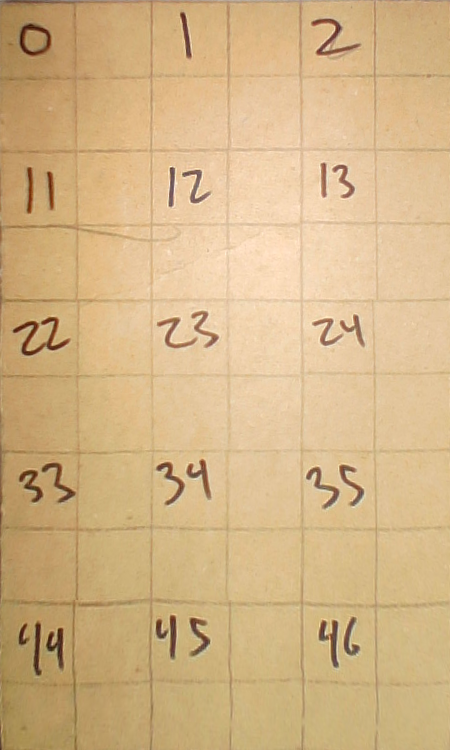 0 1 2
11 12 13
22 23 24
33 34 35
44 45 46